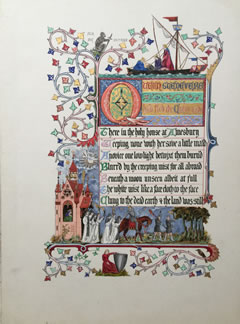 QUEEN GUINEVERE
There in the holy house at Almesbury
Weeping, none with her save a little maid
A novice one low light betwixt them burned
Blurred by the creeping mist for all abroad
Beneath a moon unseen albeit at full
The white mist like a face cloth to the face
Clung to the dead earth & the land was still